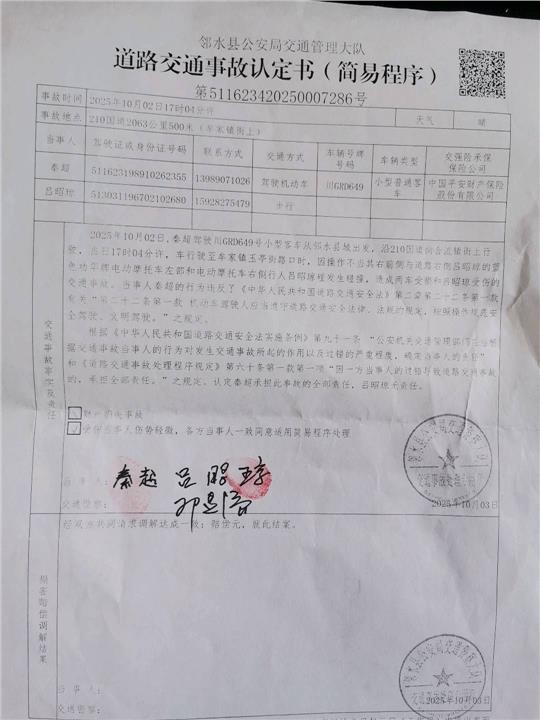 邻水县公安局交通管理大队
道路交通事故认定书（简易程序）
第511623420250007286号
事故时间 2025年10月02日17时04分许 天气 晴
事故地点 210国道2063公里500米（车家镇街上）
当事人 驾驶证或身份证号码 联系方式 交通方式 车辆号牌号码 车辆类型 交强险承保保险公司
秦超 511623198910262355 13989071026 驾驶机动车 川GRD649 小型普通客车 中国平安财产保险股份有限公司
吕昭 513031196702102680 15928275479 步行
交通事故事实及责任
2025年10月02日，秦超驾驶川GRD649号小型客车从邻水县城出发，沿210国道向合流镇街上行
驶，当日17时04分许，车行驶至车家镇玉亭街路口时，因操作不当其右前侧与道路右侧吕昭 的蓝
色功华牌电动摩托车左部和电动摩托车右侧行人吕昭 程发生碰撞，造成两车受损和吕昭 受伤的
交通事故。当事人秦超的行为违反了《中华人民共和国道路交通安全法》第二章第二十二条第一款
有关“第二十二条第一款 机动车驾驶人应当遵守道路交通安全法律、法规的规定，按照操作规范安
全驾驶、文明驾驶。”之规定。
根据《中华人民共和国道路交通安全法实施条例》第九十一条 “公安机关交通管理部门应当根
据交通事故当事人的行为对发生交通事故所起的作用以及过错的严重程度，确定当事人的责任”
和《道路交通事故处理程序规定》第六十条第一款第一项“因一方当事人的过错导致道路交通事故
的，承担全部责任。”之规定。认定秦超承担此事故的全部责任，吕昭 无责任。
财产损失事故
受伤当事人伤势轻微，各方当事人一致同意适用简易程序处理
当事人： 秦超 吕
交通警察：
2025年10月03日
损害赔偿调解结果
经双方共同请求调解达成一致：赔偿元，就此结案。
当事人：
交通警察：
2025年10月03日